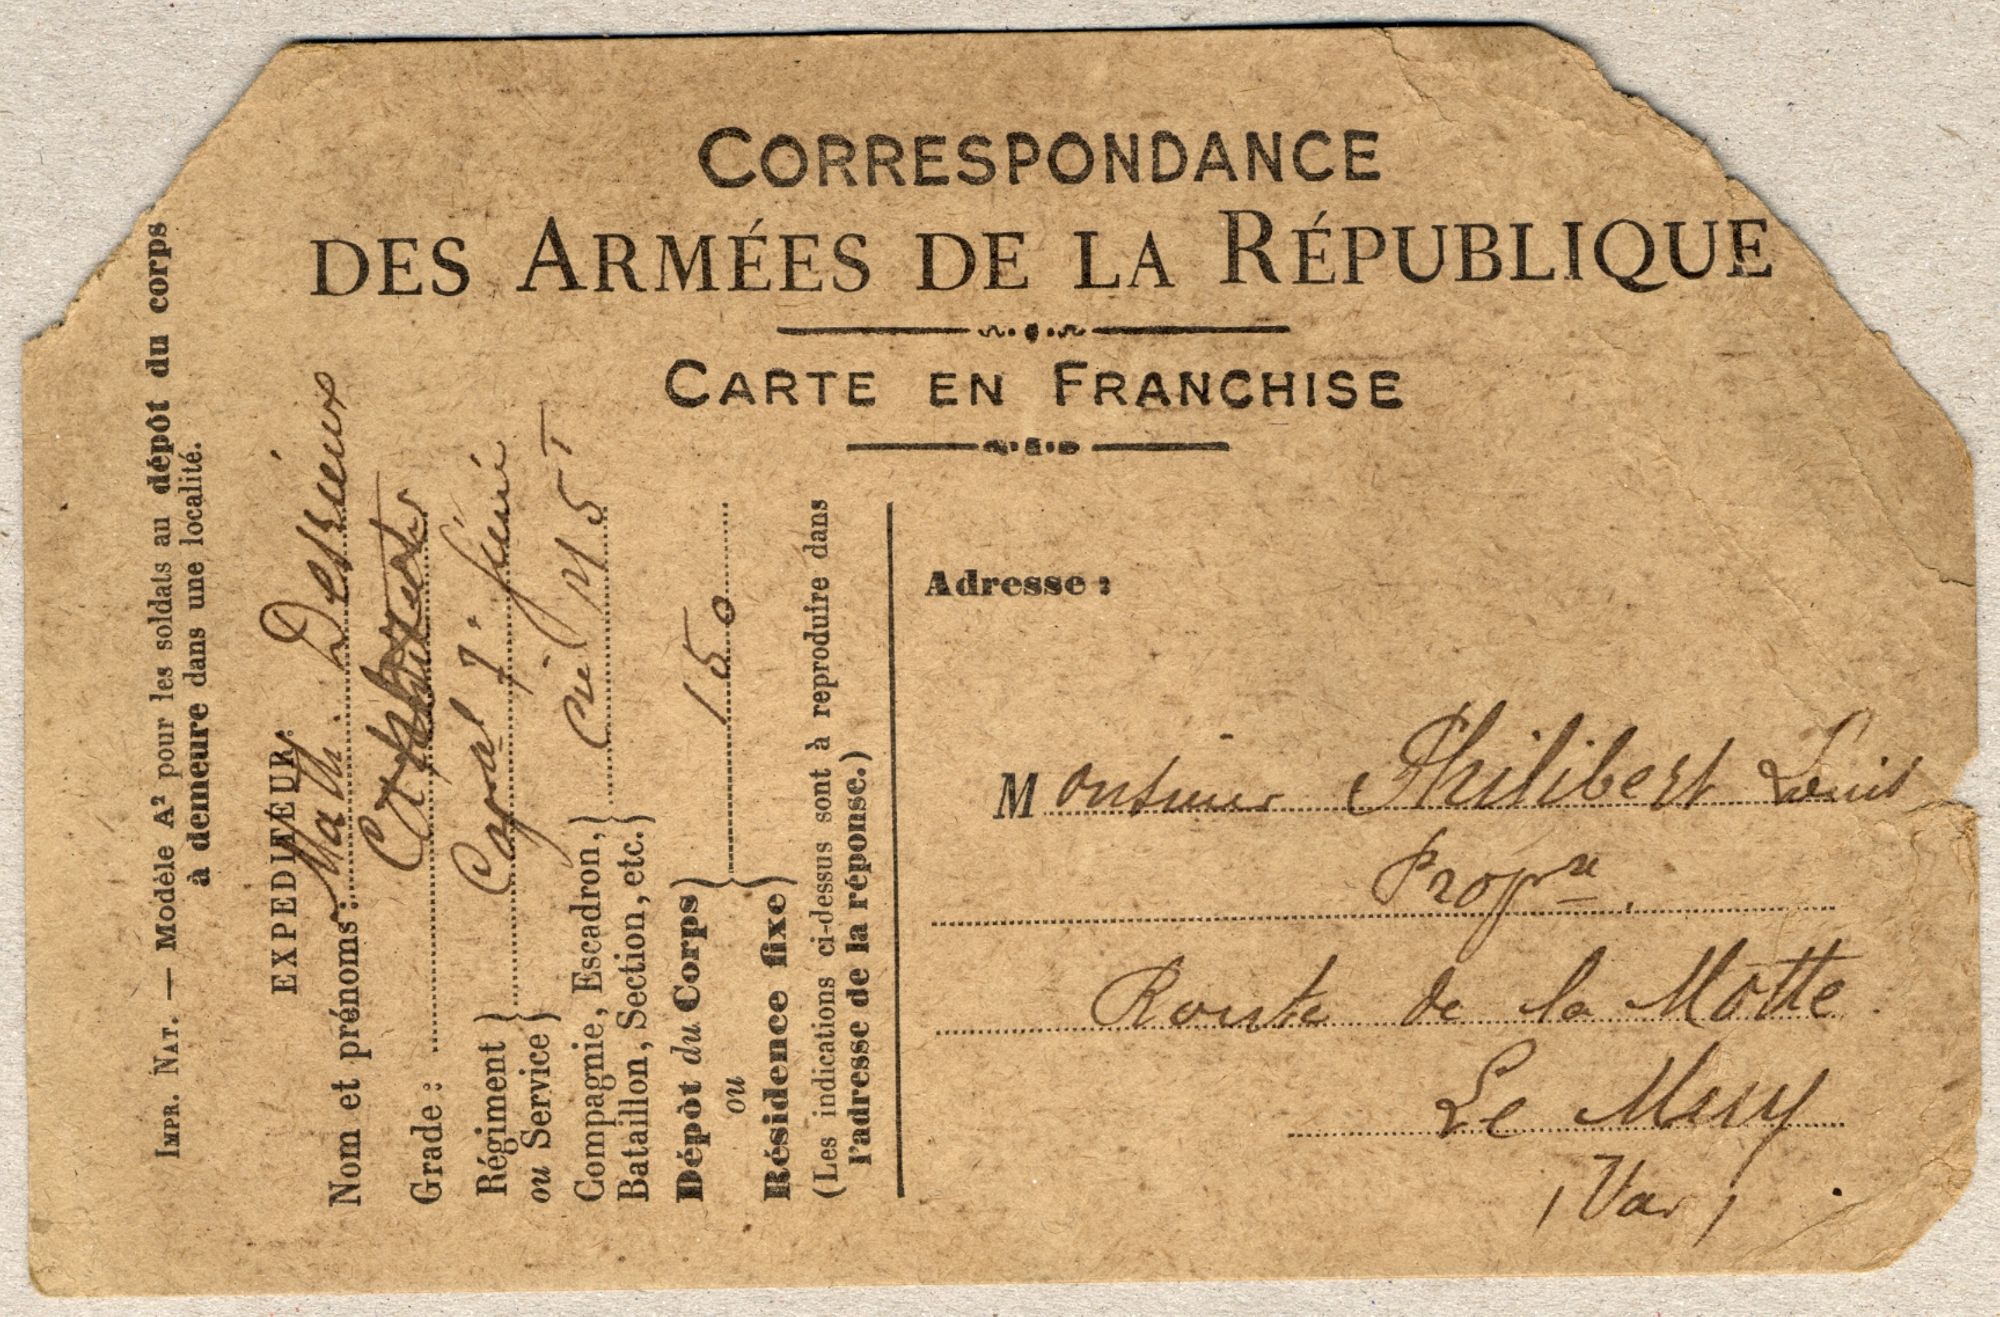 CORRESPONDANCE
DES ARMÉES DE LA RÉPUBLIQUE
CARTE EN FRANCHISE
IMPR. NAT. — Modèle A² pour les soldats au dépôt du corps
à demeure dans une localité.
EXPÉDITEUR:
Nom et prénoms: Math. Dessieux
Grade:
Régiment
ou Service } Capal 7e Génie
Compagnie, Escadron,
Bataillon, Section, etc. } Cie M 5 T
Dépôt du Corps
ou
Résidence fixe } 150
(Les indications ci-dessus sont à reproduire dans
l'adresse de la réponse.)
Adresse:
Monsieur Philibert Louis
Propre.
Route de la Motte.
Le Muy
(Var)